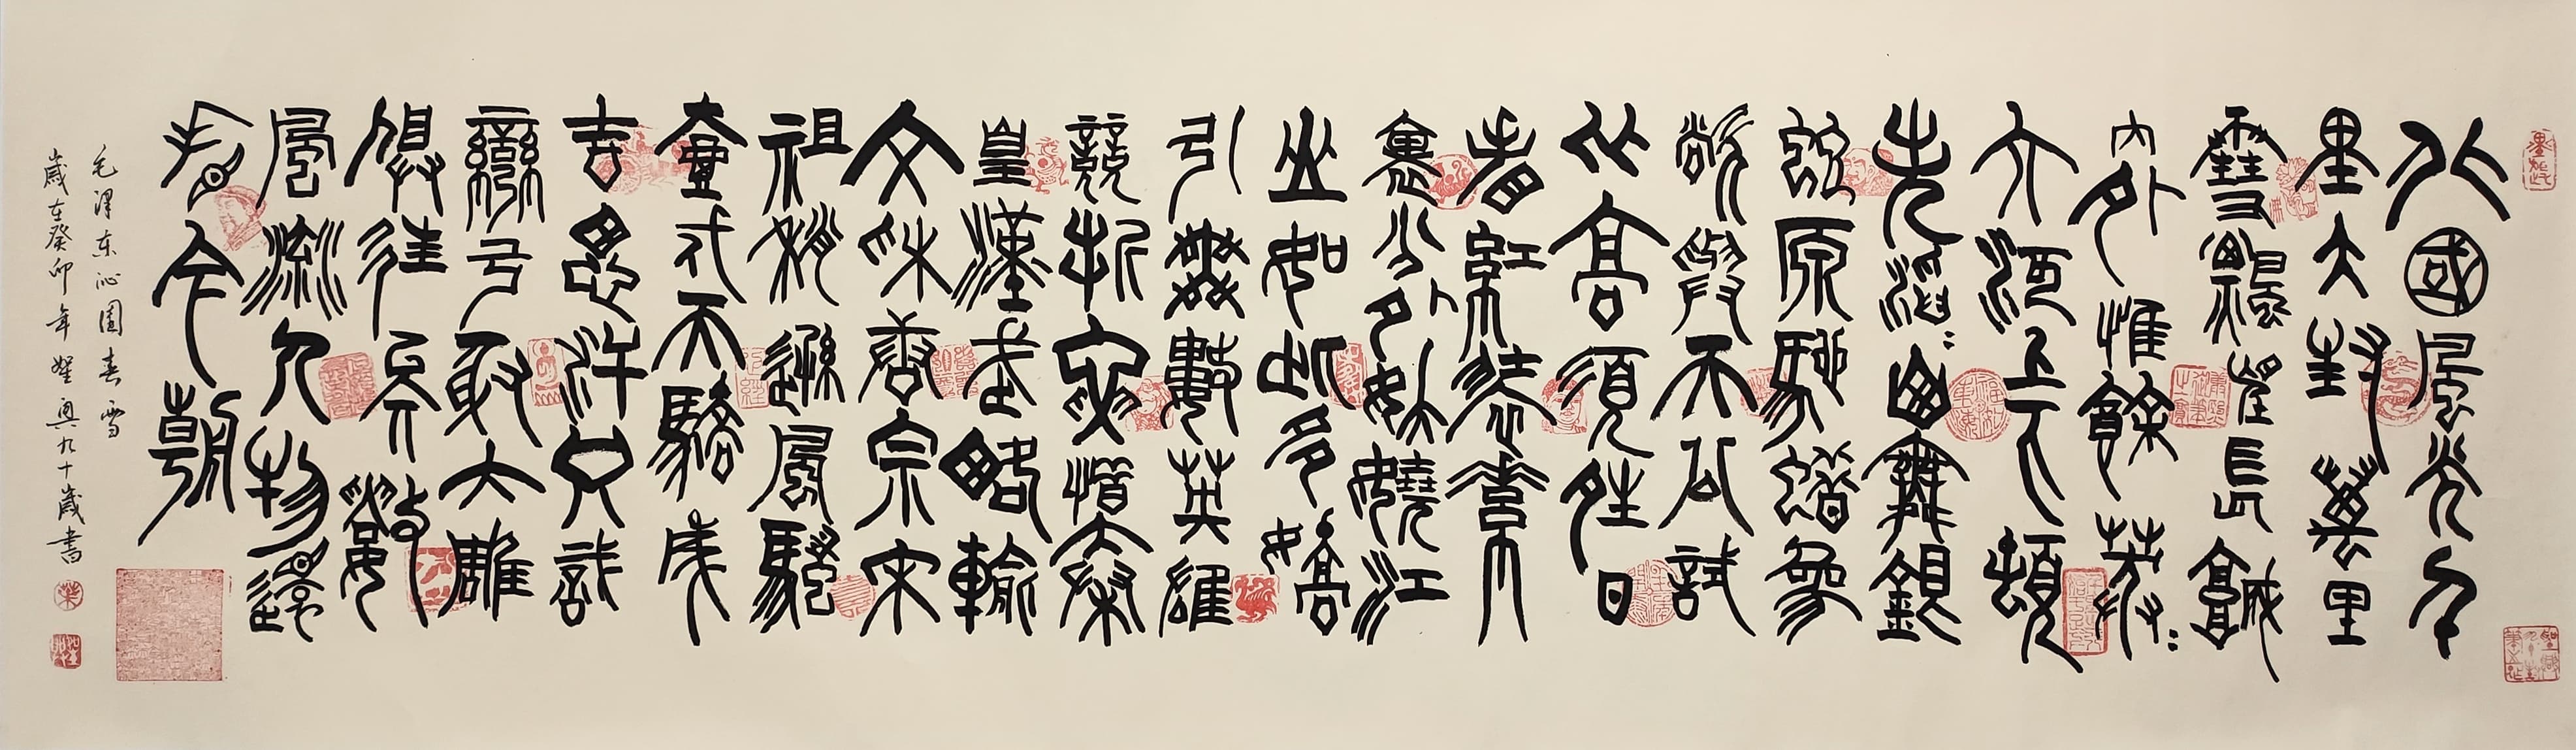 北國風光千
里冰封萬里
雪飄望長城
內外惟餘莽〻
大河上下頓
失滔〻山舞銀
蛇原馳蠟象
欲與天公試
比高須晴日
看紅裝素
裹分外妖嬈江
山如此多嬌
引無數英雄
競折腰惜秦
皇漢武略輸
文采唐宗宋
祖稍遜風騷
壹代天驕成
吉思汗只識
彎弓射大雕
俱往矣數
風流人物還
看今朝
毛澤东沁園春雪
歲在癸卯年 九十歲書